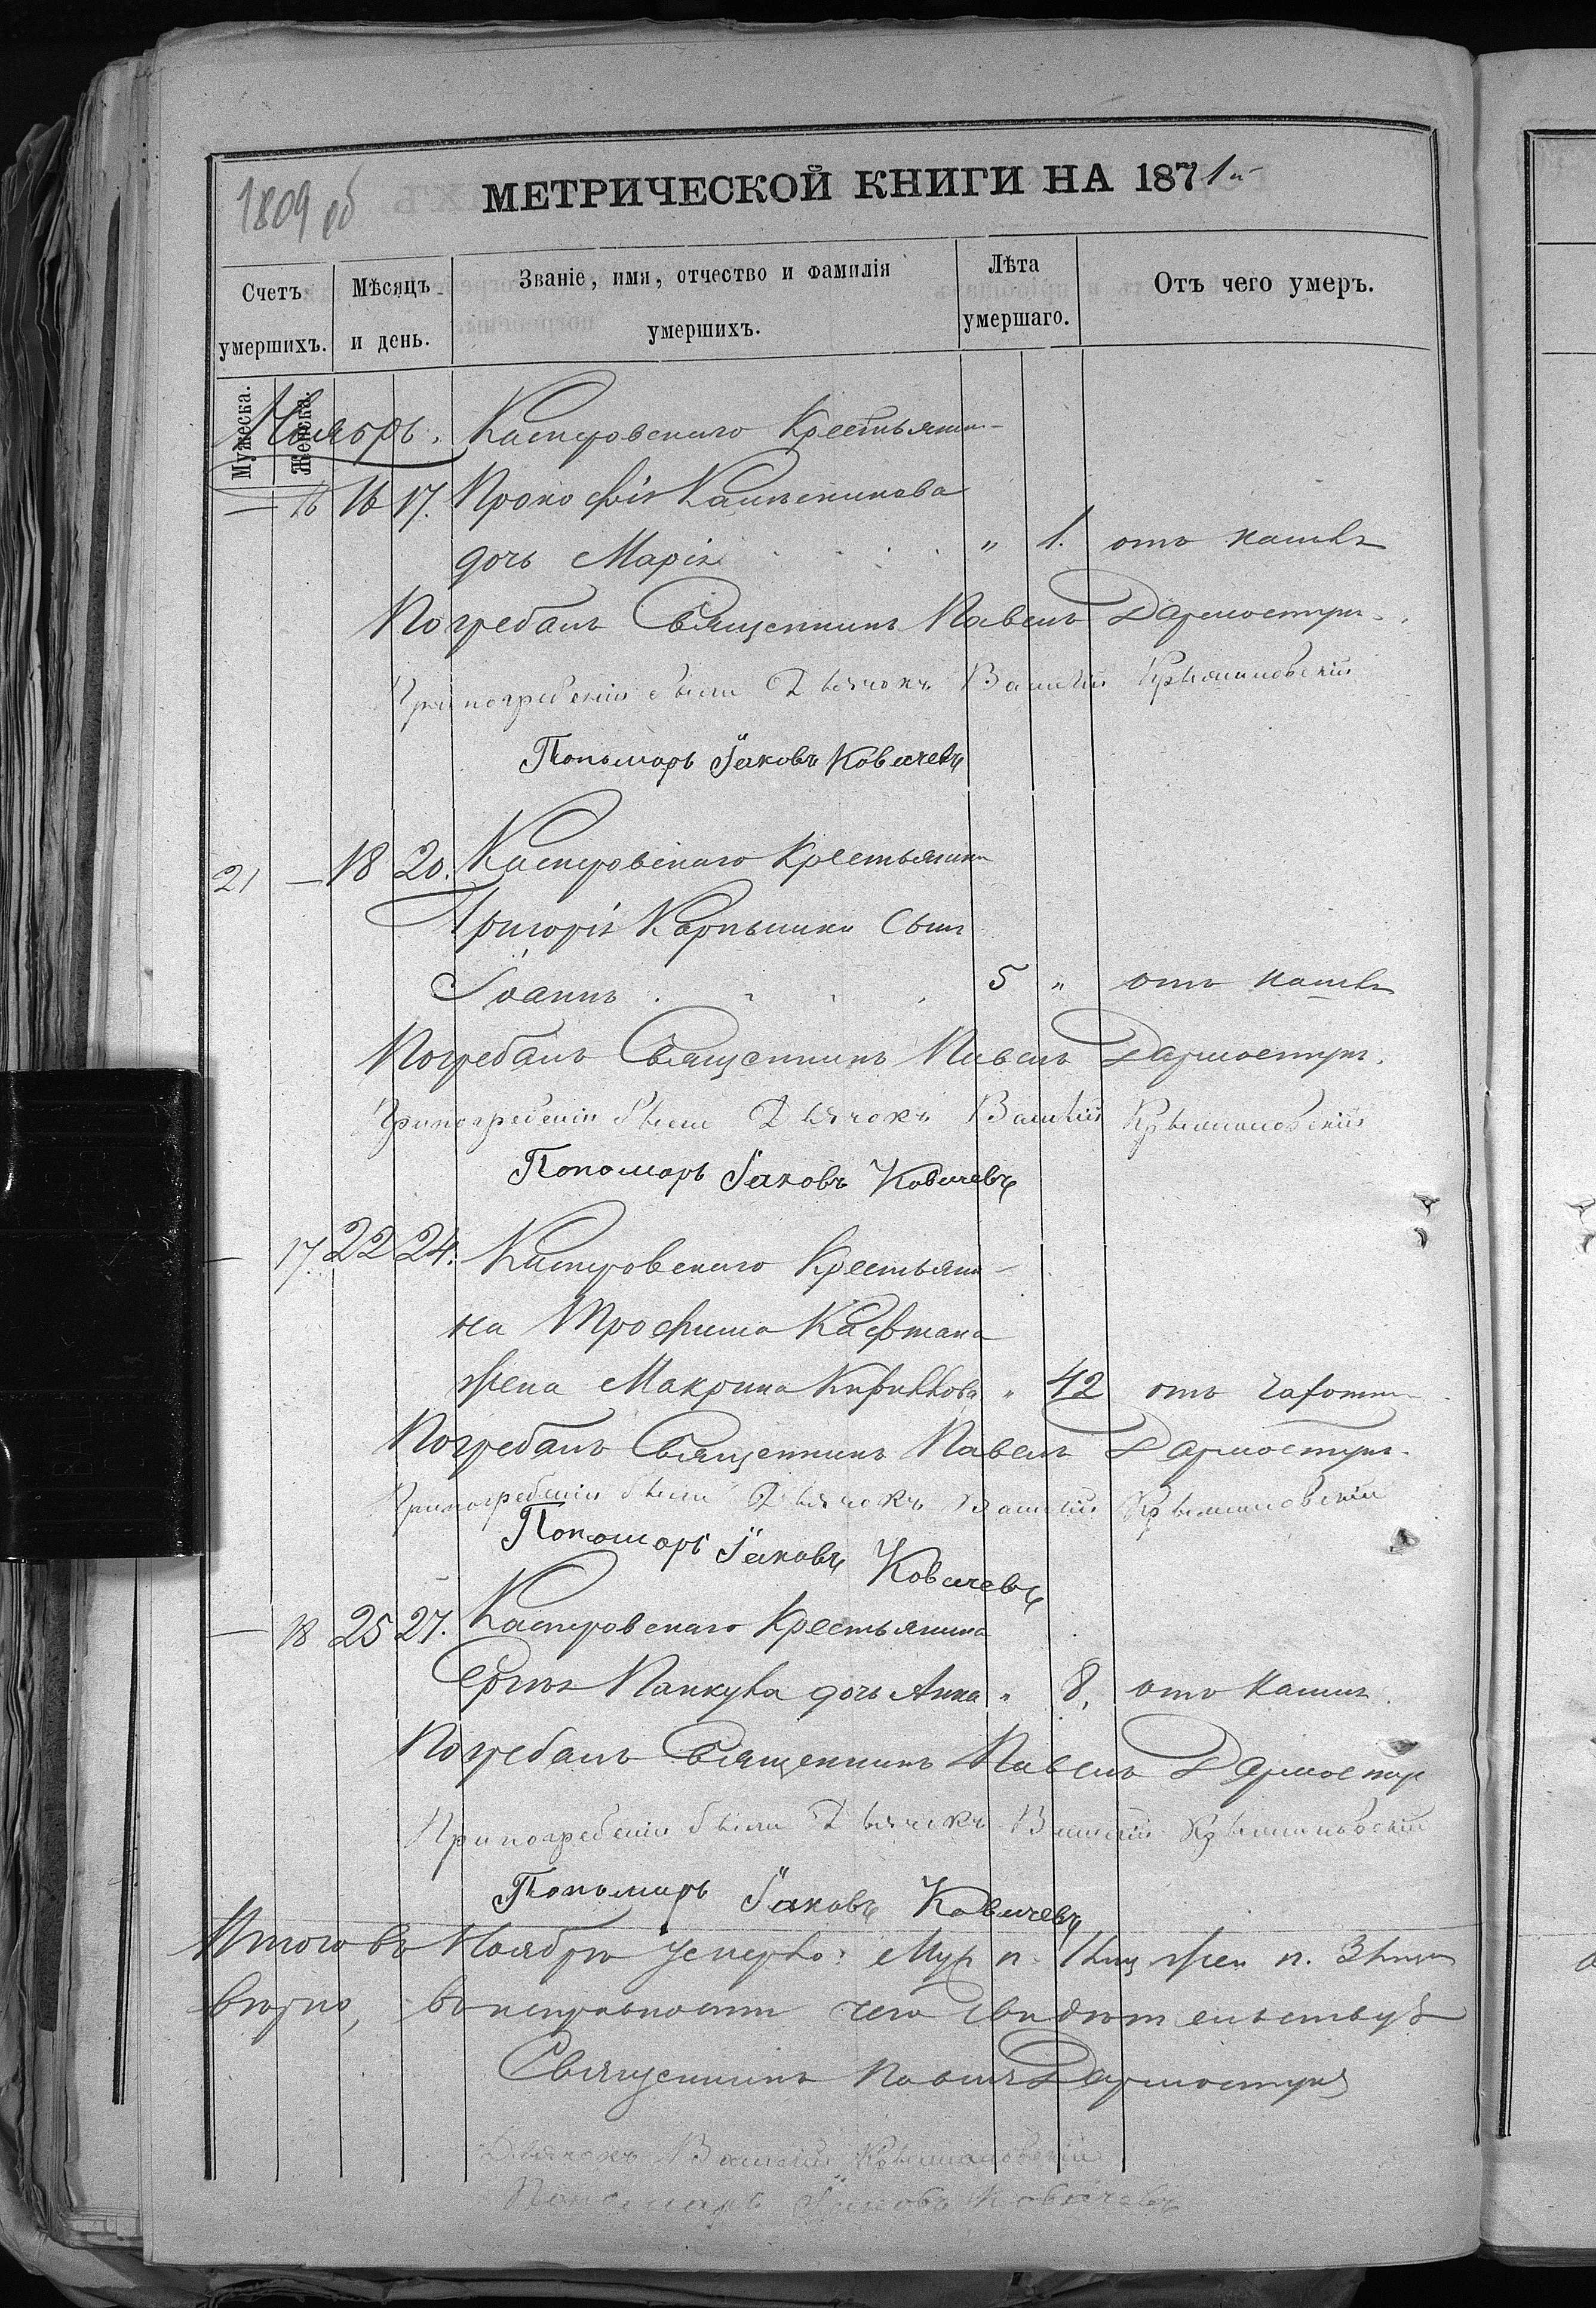 1809 об
МЕТРИЧЕСКОЙ КНИГИ НА 1871й
Счетъ умершихъ.
Мѣсяцъ и день.
Званіе, имя, отчество и фамилія умершихъ.
Лѣта умершаго.
Отъ чего умеръ.
Мужеска.
Женска.
Ноябрь. Касперовскаго Крестьянина
— 16 16 17. Прокофія Калъсникова
дочь Марія „ 1. отъ кашля
Погребалъ Священникъ Павелъ Дармостукъ
При погребеніи были Дьячокъ Василій Крыжановскій
Пономарь Іаковъ Ковачевъ
21 — 18 20. Касперовскаго Крестьянина
Григорія Карпынки Сынъ
Іоаннъ 5 „ отъ кашля
Погребалъ Священникъ Павелъ Дармостукъ.
При погребеніи были Дьячокъ Василій Крыжановскій
Пономарь Іаковъ Ковачевъ
— 17. 22 24. Касперовскаго Крестьяни-
на Трофима Кафтана
жена Макрина Кириллова „ 42 отъ чахотки
Погребалъ Священникъ Павелъ Дармостукъ
При погребеніи были Дьячокъ Василій Крыжановскій
Пономарь Іаковъ Ковачевъ
— 18 25 27. Касперовскаго Крестьянина
Сергія дочь Анна „ 8. отъ кашля.
Погребалъ Священникъ Павелъ Дармостук
При погребеніи были Дьячекъ Василій Крыжановскій
Пономарь Іаковъ Ковачевъ
Итого въ Ноябрѣ умерло: Муж п. 1 лиц жен п. 3 лица
вѣрно, въ исправности чего Свидѣтельствуетъ
Священникъ Павелъ Дармостукъ
Дьячокъ Василій Крыжановскій
Пономарь Іаковъ Ковачевъ